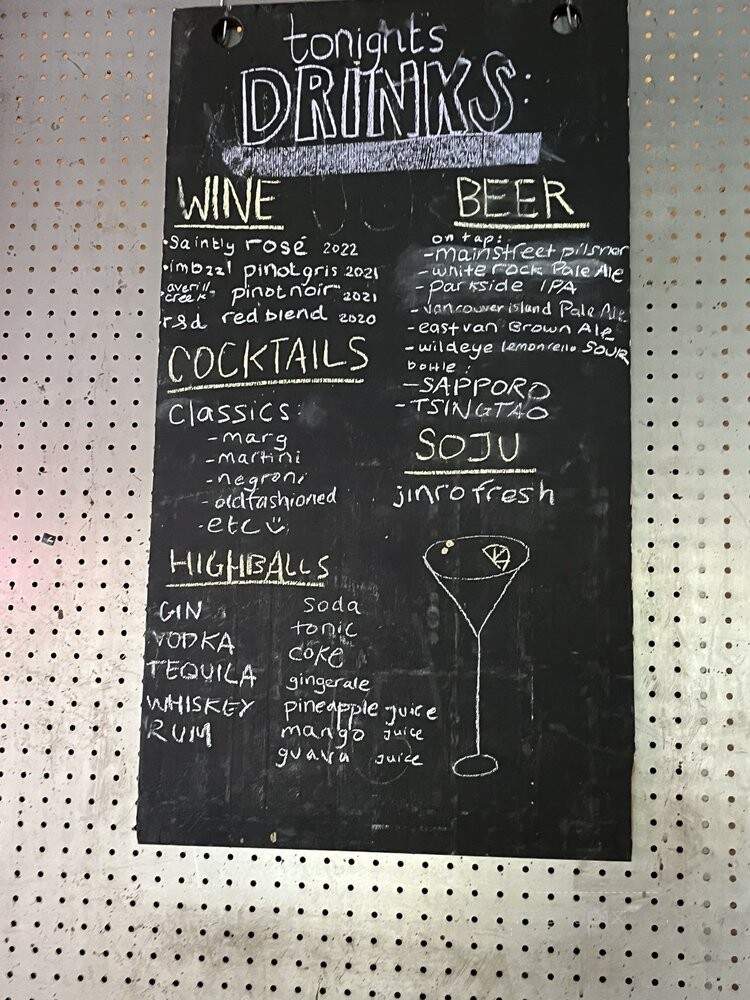 tonight's
DRINKS:
WINE
•Saintly rosé 2022
•imbzzl pinot gris 2021
•averill creek pinot noir 2021
r&d red blend 2020
COCKTAILS
Classics:
-marg
-martini
-negroni
-old fashioned
-etc
HIGHBALLS
GIN
VODKA
TEQUILA
WHISKEY
RUM
Soda
tonic
coke
gingerale
pineapple juice
mango juice
guava juice
BEER
on tap:
-mainstreet pilsner
-white rock Pale Ale
-parkside IPA
-vancouver island Pale Ale
-eastvan Brown Ale
-wildeye lemoncello SOUR
bottle:
-SAPPORO
-TSINGTAO
SOJU
jinro fresh